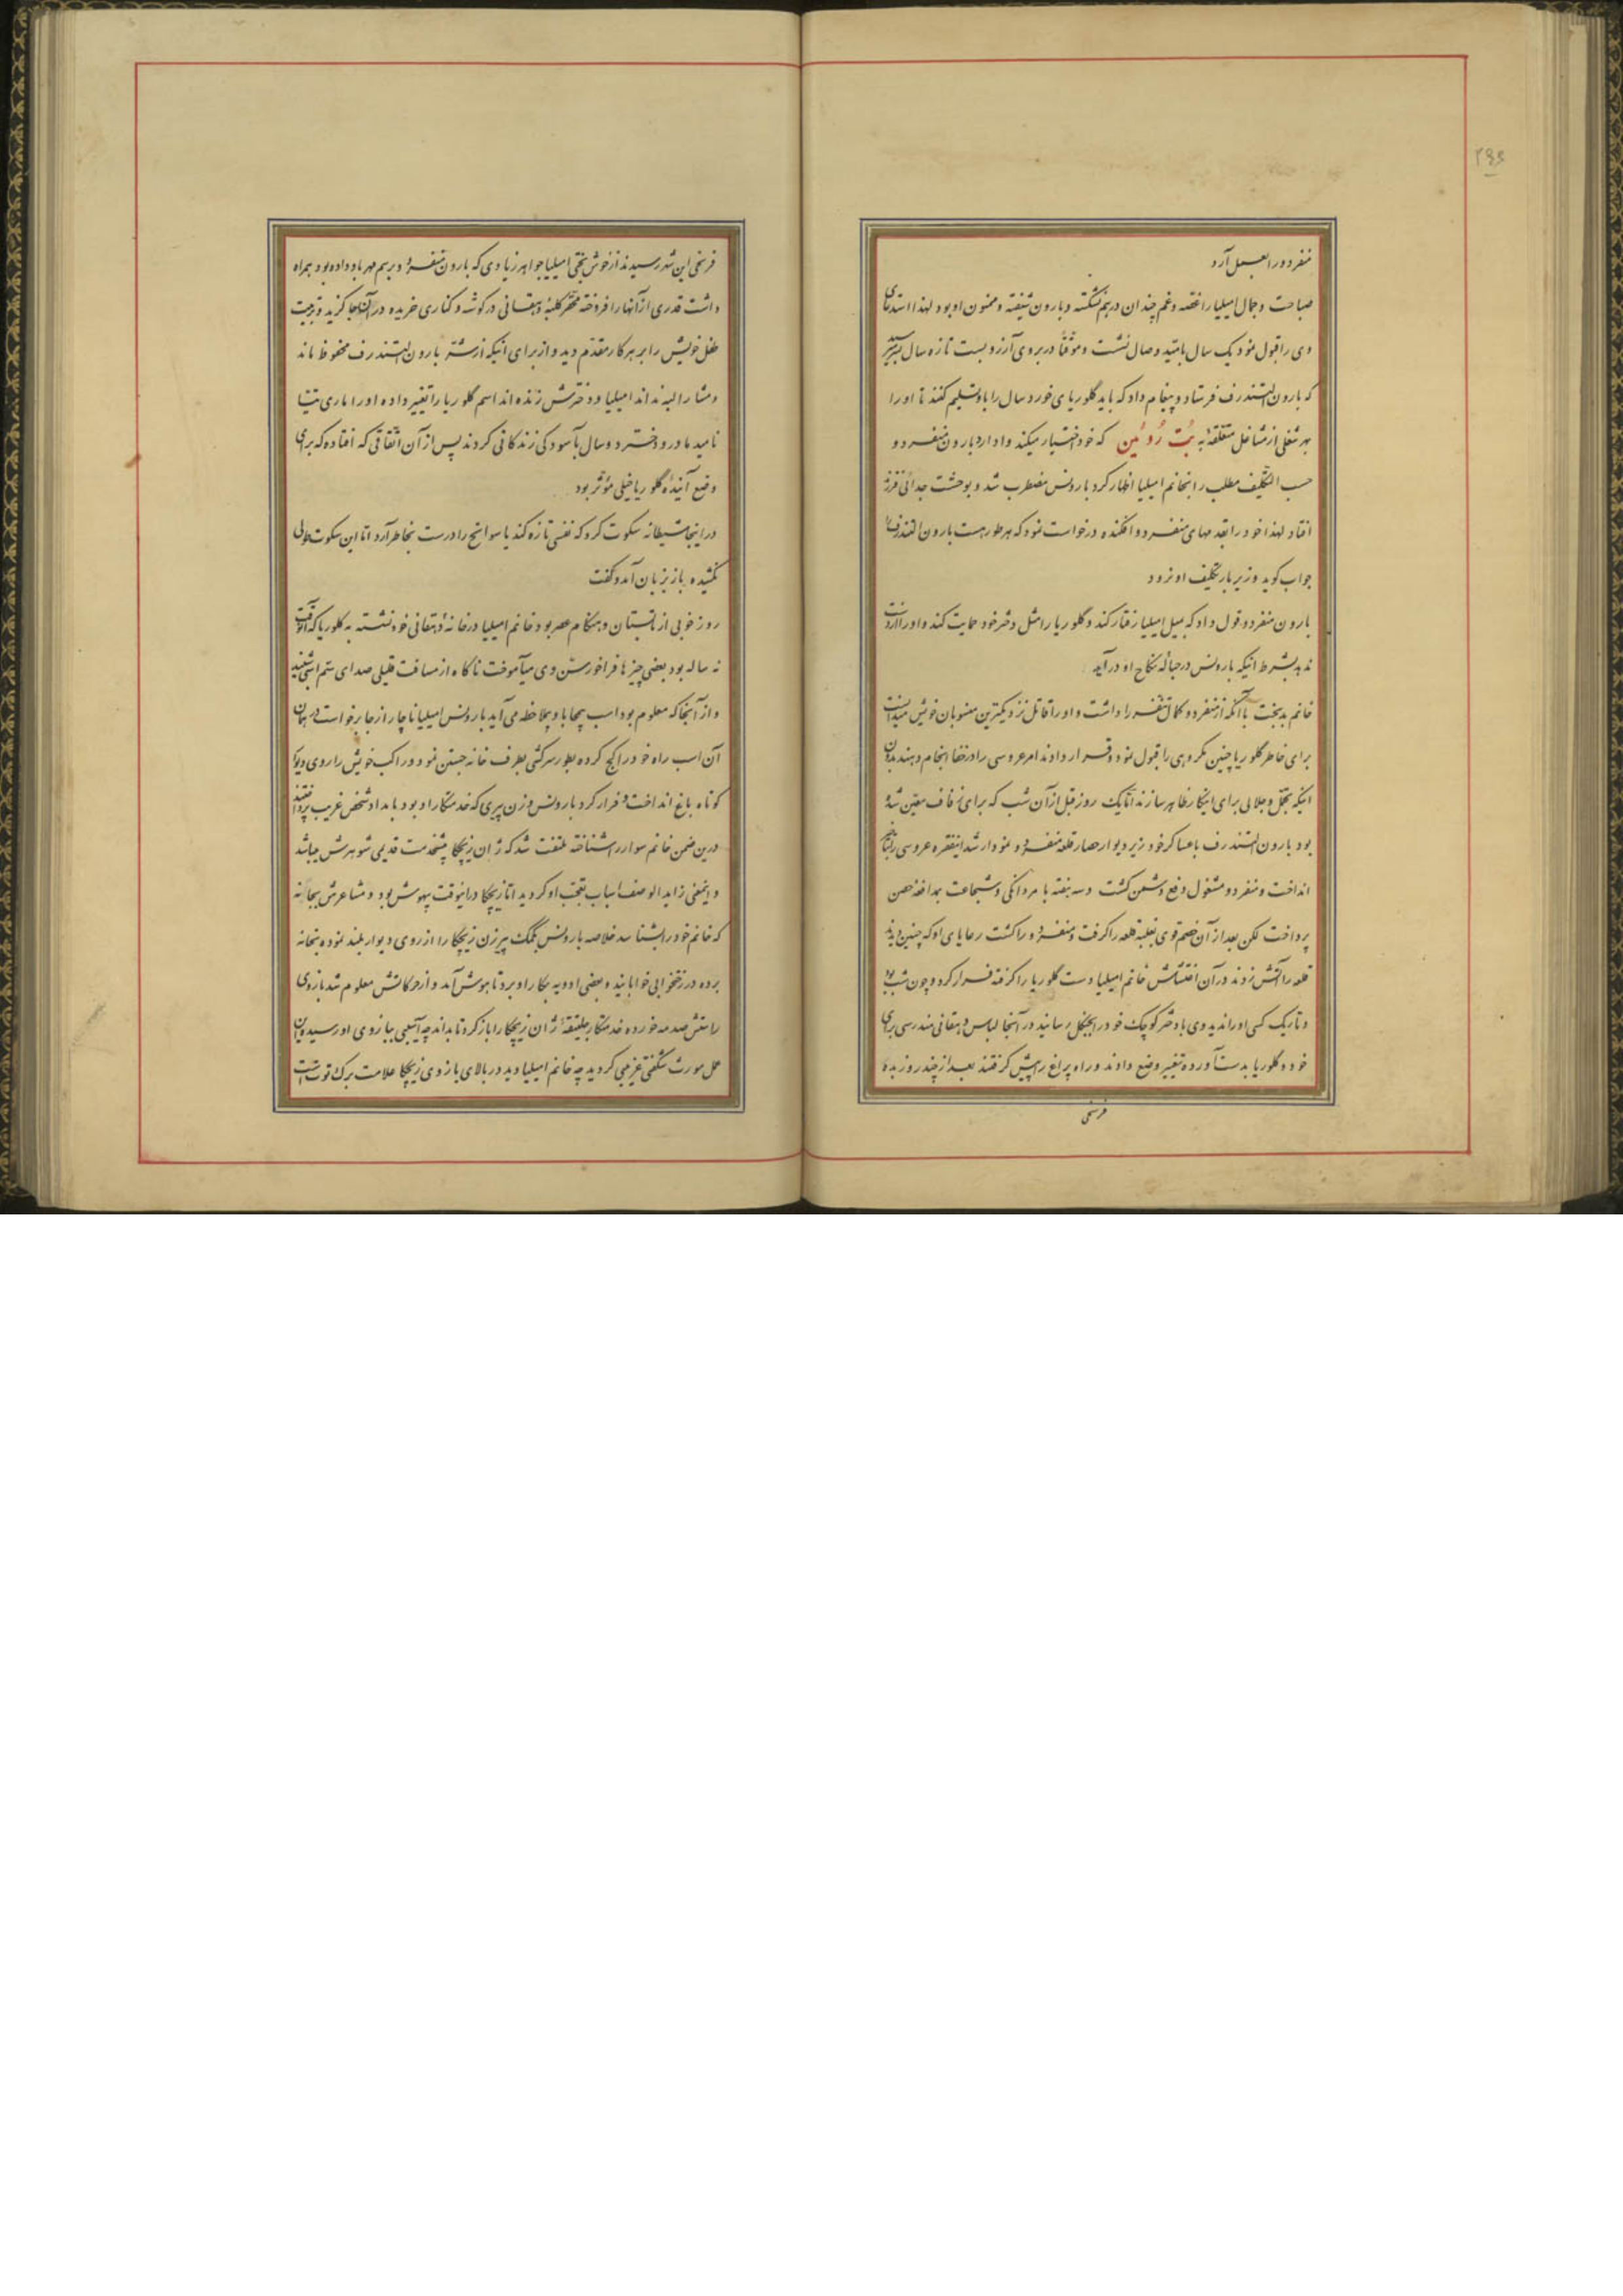 ۲۹۵
منفرد ورا بعمل آرد
صباحت و جمال امیلیا را غصه و غم چندان درهم نشکسته و بارون شیفته و ممنون او بود لهذا استدعای
وی را قبول نمود یک سال بامید وصال نشست و موقتا در بروی آرزو بست تازه سال بسر رسید
که بارون التندرف فرستاد و پیغام داد که باید گلوریای خورد سال را باو تسلیم کنند تا او را
بهر شغلی از مشاغل متعلقه به بت روئین که خود اختیار میکند وادارد بارون منفردو
حسب التکلیف مطلب را بخانم امیلیا اظهار کرد بارونس مضطرب شد و بوحشت جدائی فرزند
افتاد لهذا خود را بقدمهای منفردو افکنده درخواست نمود که هر طور هست بارون التندرف را
جواب گوید و زیر بار تکلیف او نرود
بارون منفردو قول داد که بمیل امیلیا رفتار کند و گلوریا را مثل دختر خود حمایت کند و او را از دست
ندهد بشرط اینکه بارونس در حباله نکاح او درآید
خانم بدبخت با آنکه از منفردو کمال تنفر را داشت و او را قاتل نزدیکترین منسوبان خویش میدانست
برای خاطر گلوریا چنین مکروهی را قبول نمود و قرار دادند امر عروسی را در خفا انجام دهند بدون
اینکه تجمل و جلالی برای اینکار ظاهر سازند اتا یک روز قبل از آن شب که برای زفاف معین شده
بود بارون التندرف با عساکر خود زیر دیوار حصار قلعه منفردو نمودار شد اینفقره عروسی را بتأخیر
انداخت و منفردو مشغول دفع دشمن گشت و سه هفته با مردانگی و شجاعت بمدافعه حصن
پرداخت لکن بعد از آن خصم قوی بغلبه قلعه را گرفت و منفردو را کشت رعایای او که چنین دیدند
قلعه را آتش زدند در آن اغتشاش خانم امیلیا دست گلوریا را گرفته فرار کرد و چون شب بود
و تاریک کسی او را ندید وی با دختر کوچک خود را بجنگل رسانید در آنجا لباس دهقانی مندرسی برای
خود و گلوریا بدست آورده تغییر وضع دادند و راه پراغ را پیش گرفتند بعد از چند روز بده
فرسخی
فرسخی این شهر رسیدند از خوش بختی امیلیا جواهر زیادی که بارون منفردو برسم مهر باو داده بود همراه
داشت قدری از آنها را فروخته محقر کلبه دهقانی در گوشه و کناری خریده در آنجا جا گزید و تربیت
طفل خویش را بر هر کار مقدم دید و از برای اینکه از شر بارون التندرف محفوظ ماند
و مشارالیه نداند امیلیا و دخترش زنده اند اسم گلوریا را تغییر داده او را ماری تیتیا
نامید مادر و دختر دو سال بآسودگی زندگانی کردند پس از آن اتفاقی که افتاد که برای
وضع آینده گلوریا خیلی مؤثر بود
در اینجا شیطانه سکوت کرد که نفسی تازه کند یا سوانح را درست بخاطر آرد اما این سکوت طولی
نکشیده باز بزبان آمد و گفت
روز خوبی از تابستان و هنگام عصر بود خانم امیلیا در خانه دهقانی خود نشسته به گلوریا که آنوقت
نه ساله بود بعضی چیزها فراخور سن وی میآموخت ناگاه از مسافت قلیلی صدای سم اسبی شنید
و از آنجا که معلوم بود اسب بیمحابا و بیملاحظه می آید بارونس امیلیا ناچار از جا برخواست در همان
آن اسب راه خود را کج کرده بطور سرکشی بطرف خانه جستن نمود و راکب خویش را روی دیوار
کوتاه باغ انداخت و فرار کرد بارونس و زن پیری که خدمتکار او بود بامداد شخص غریب پرداختند
درین ضمن خانم سوار را شناخته ملتفت شد که ژان زیچکا پیشخدمت قدیمی شوهرش میباشد
و اینمعنی زاید الوصف اسباب تعجب او گردید اما زیچکا در اینوقت بیهوش بود و مشاعرش بجا نه
که خانم خود را بشناسد خلاصه بارونس بکمک پیرزن زیچکا را از روی دیوار بلند نموده بخانه
برده در رختخوابی خوابانید و بعضی ادویه بکار او برد تا بهوش آمد و از حرکاتش معلوم شد بازوی
راستش صدمه خورده خدمتکار جلیتقه ژان زیچکا را باز کرد تا بداند چه آسیبی ببازوی او رسیده این
عمل مورث شگفتی عزیمی گردید چه خانم امیلیا دید در بالای بازوی زیچکا علامت برک توت است